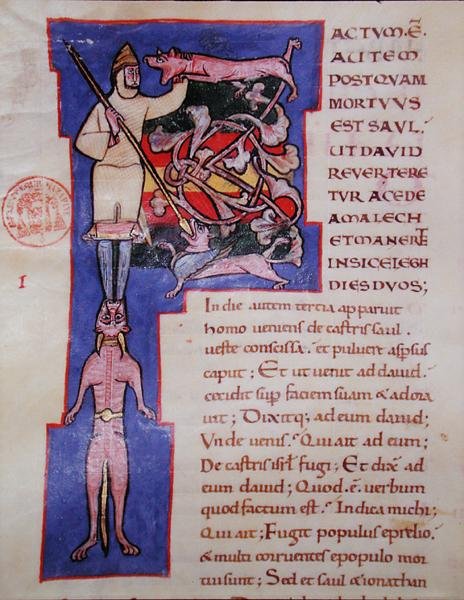 ACTVM. Ē.
AUTEM
POSTQVAM
MORTVVS
EST SAVL.
UT DAVID
REVERTERE
TVR ACEDE
AMALECH
ET MANERET
IN SICELEGH
DIES DVOS;
In die autem tercia apparuit
homo veniens de castris saul.
ueste conscissa. et puluere aspsus
caput; Et ut uenit ad dauid.
cecidit sup faciem suam & adora
uit; Dixitq; ad eum dauid;
Vnde uenis. Qui ait ad eum;
De castris isrl fugi; Et dix ad
eum dauid; Quod. ē. uerbum
quod factum est. Indica michi;
Qui ait; Fugit populus eprelio.
& multi corruentes epopulo mor
tui sunt; Sed et saul & ionathan
I